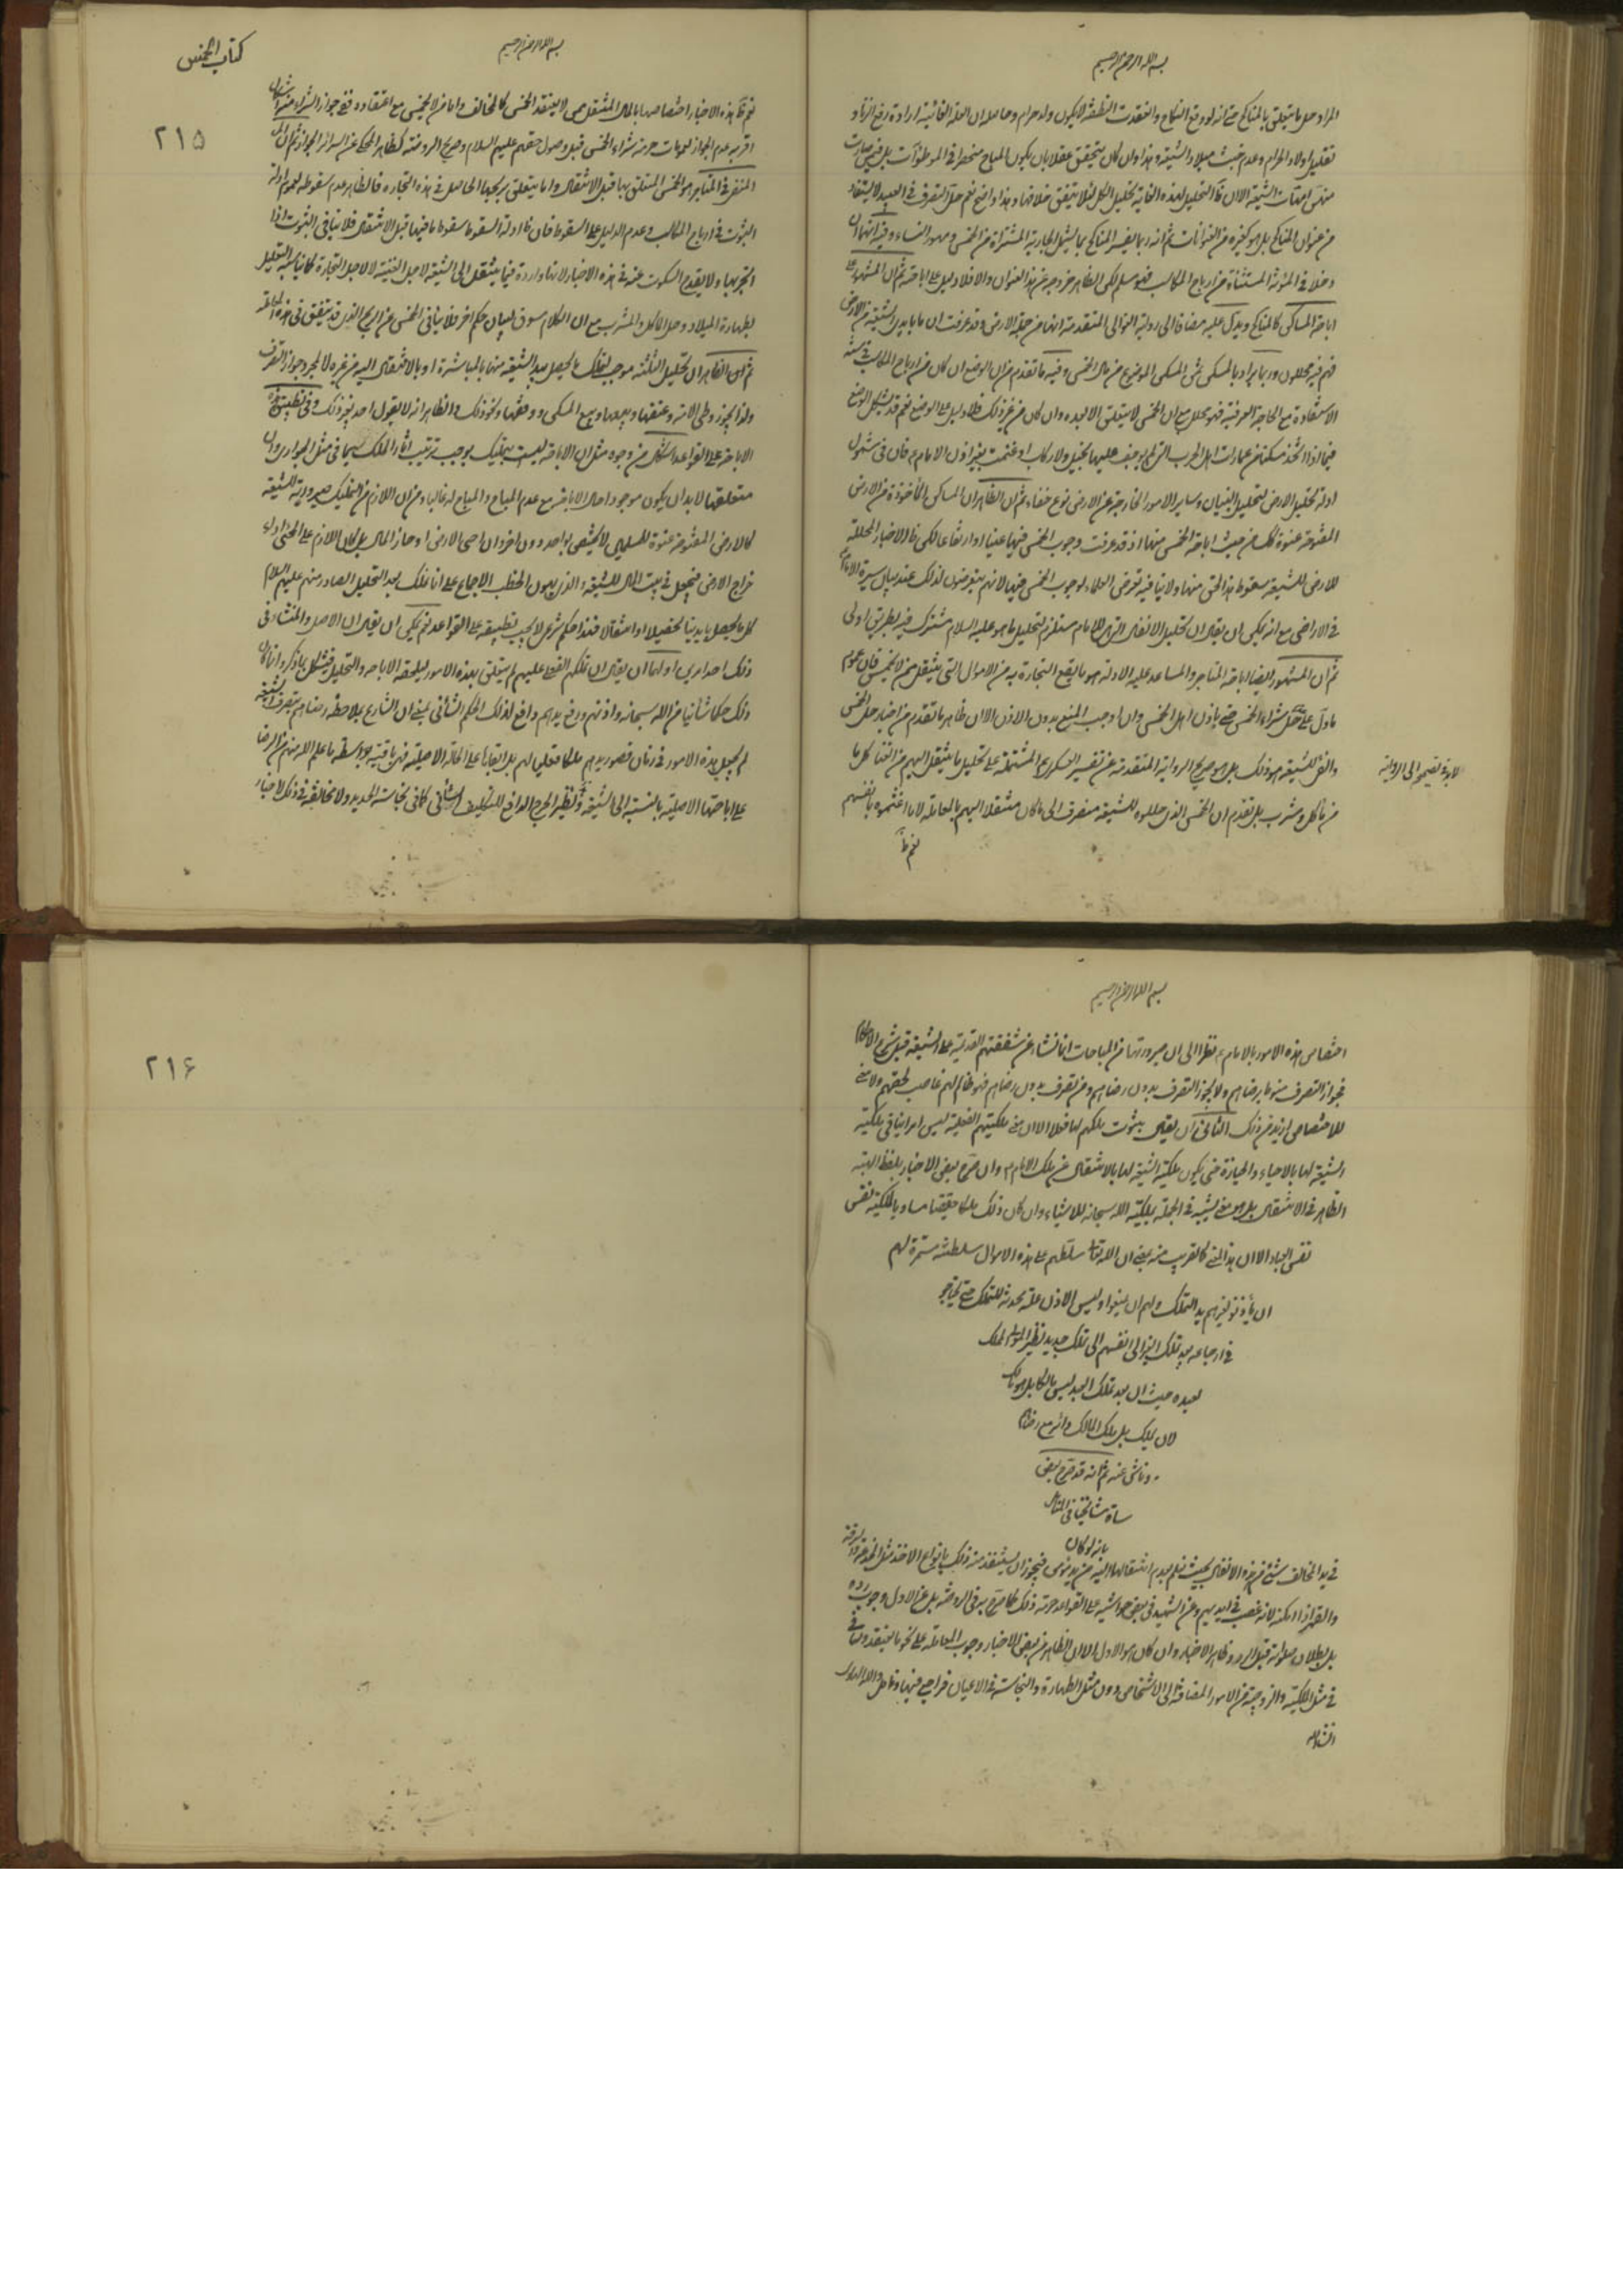 بسم الله الرحمن الرحيم
المراد حل ما يتعلق بالمناكح حتى انه لو وقع النكاح وانعقدت النطفة لا يكون ولد حرام وحاصله ان العلة الغائية ارادة رفع الزنا و
تقليل اولاد الحرام وعدم خبث ميلاد الشيعة وهذا وان كان يتحقق عقلا بان يكون المباح منحصرا في الموطوآت بل فيمن صارت
منهن امهات الشيعة الا ان التحليل لهذه الغاية تحليل الكل لئلا يتفق خلافها وهذا واضح نعم حل التصرف في العبيد لا يستفاد
من عنوان المناكح بل هو كغيره من العنوانات ثم انه ربما يفسر المناكح بما يشمل الجارية المشتراة من الخمس ومهور النساء وفيه انهما ان
دخلا في المؤنة المستثناة من ارباح المكاسب فهو مسلم لكن الظاهر خروجه عن هذا العنوان والا فلا دليل على اباحته ثم ان المشهور على
اباحة المساكن كالمناكح ويدل عليه مضافا الى رواية العوالي المتقدمة انها من جملة الارض وقد عرفت ان ما بايدي الشيعة من الارض
فهم فيه محللون وربما يراد بالمسكن ثمن المسكن الموضوع من مال الخمس وفيه ما تقدم من ان الوضع ان كان من ارباح المكاسب في سنة
الاستفادة مع الحاجة العرفية فهو محلل مع ان الخمس لا يتعلق الا بعده وان كان من غير ذلك فلا دليل على الوضع نعم قد يشكل الوضع
فيما اذا اتخذ مسكنا من عمارات اهل الحرب التي لم يوجف عليها بخيل ولا ركاب او غنمت بغير اذن الامام ع فان في شمول
ادلة تحليل الارض لتحليل البنيان وسائر الامور الخارجة عن الارض نوع خفاء ثم ان الظاهر ان المساكن المأخوذة من الارض
المفتوحة عنوة كك من حيث اباحة الخمس منها اذ قد عرفت وجوب الخمس فيها عينا او ارتفاعا لكن الاخبار المحللة
للارض للشيعة سقوط هذا الحق منها ولا ينافيه تعرض العلماء لوجوب الخمس فيها لانهم يتعرضون لذلك عند بيان سيرة الامام ع
في الاراضي مع انه يمكن ان يقال ان تحليل الانفال التي للامام مستلزم لتحليل ما هو عليه السلام مشترك فيه بطريق اولى
ثم ان المشهور ايضا اباحة المتاجر والمساعد عليه الادلة هو ما يقع التجارة به من الاموال التي ينتقل من لا يخمس فان عموم
ما دل على حل شراء الخمس حتى باذن اهل الخمس وان اوجب المنع بدون الاذن الا ان ظاهر ما تقدم من اخبار حل الخمس
والفئ للشيعة هو ذلك بل هو صريح الرواية المتقدمة عن تفسير العسكري ع المشتملة على تحليل ما ينتقل اليهم من الغنائم
من مأكل ومشرب بل تقدم ان الخمس الذي حللوه للشيعة منصرف الى ما كان منتقلا اليهم بالمعاملة لا ما اغتنموه بانفسهم
نعم ظ
بسم الله الرحمن الرحيم
كتاب الخمس
٢١٥
نعم ظ هذه الاخبار اختصاصها بالمال المنتقل ممن لا يعتقد الخمس كالمخالف واما من لا يخمس مع اعتقاده ففي جواز الشراء منه اشكال
اقربه عدم الجواز لعمومات حرمة شراء الخمس قبل وصول حقهم عليهم السلام وصريح الروضة كظاهر المحكي عن السرائر الجواز ثم ان
المتقن في المتاجر هو الخمس المتعلق بها قبل الانتقال واما ما يتعلق بربحها الحاصل في هذه التجارة فالظاهر عدم سقوطه لعموم ادلة
الثبوت في ارباح المكاسب وعدم الدليل على السقوط فان ادلة السقوط سقوط ما فيها قبل الانتقال فلا ينافي الثبوت اذا
اتجر بها ولا يقدح السكوت عنه في هذه الاخبار لانها واردة فيما ينتقل الى الشيعة لاجل القنية لا لاجل التجارة كما يناسبه التعليل
بطهارة الميلاد وحل المأكل والمشرب مع ان الكلام مسوق لبيان حكم اخر فلا ينافي الخمس من الربح الذي قد يتفق في هذه المعاملة
ثم ان الظاهر ان تحليل الثلثة موجب لتملك ما يحصل بيد الشيعة منها بالمباشرة او بالانتقال اليه من غيره لا لمجرد جواز التصرف
ولذا يجوز وطي الامة وعتقها وبيعها وبيع المسكن ووقفها ونحو ذلك والظاهر انه لا يقول احد بغير ذلك وفي تطبيق
الاباحة على القواعد اشكال من وجوه مثل ان الاباحة ليست بتمليك يوجب ترتيب اثار الملك سيما في مثل الجواري وان
متعلقها لا بد ان يكون موجودا حال الاباحة مع عدم المباح والمباح له غالبا ومن ان اللازم من التمليك صيرورته للشيعة
كالارض المفتوحة عنوة للمسلمين لا يختص بواحد دون اخر وان احيى الارض او حاز المال بل كان اللازم على المحيي اداء
خراج الارض فيجعل في بيت المال للشيعة والذي يهون الخطب الاجماع على انها تملك بعد التحليل الصادر منهم عليهم السلام
كل ما يحصل بايدينا تحصيلا او انتقالا فهذا حكم شرعي لا يجب تطبيقه على القواعد نعم يمكن ان يقال ان الاصل والمنشأ في
ذلك احد امرين اولهما ان يقال ان تملكهم الفعلي عليهم لم يتعلق بهذه الامور ليلحقه الاباحة والتحليل فيشكل بما ذكر وانما كان
ذلك حكما شأنيا من الله سبحانه واذنهم ورفع يدهم دافع لذلك الحكم الشأني بمعنى ان الشارع بملاحظة رضاهم بتصرف الشيعة
لم يجعل هذه الامور في زمان قصور يدهم ملكا فعليا لهم بل ابقاها على الحالة الاصلية فهي باقية بواسطة ما علم الله منهم من الرضا
على اباحتها الاصلية بالنسبة الى الشيعة ونظير الحرج الدافع للتكليف الشأني كما في نجاسة الحديد ولا مخالفة في ذلك لاخبار
بسم الله الرحمن الرحيم
اختصاص هذه الامور بالامام ع نظرا الى ان صيرورتها من المباحات انما نشأ عن شفقتهم القديمة على الشيعة قبل شرع الاحكام
فجواز التصرف منوط برضاهم ولا يجوز التصرف بدون رضاهم ومن تصرف بدون رضاهم فهو ظالم لهم غاصب لحقهم ولا معنى
للاختصاص ازيد من ذلك الثاني ان يقال بثبوت ملكهم لها فعلا الا ان معنى ملكيتهم الفعلية ليس امرا ينافي ملكية
الشيعة لها بالاحياء والحيازة حتى يكون ملكية الشيعة لها بالانتقال عن ملك الامام ع وان صرح بعض الاخبار بلفظ الهبة
الظاهر في الانتقال بل هو معنى يشبه في الجملة ملكية الله سبحانه للاشياء وان كان ذلك ملكا حقيقيا مساويا لملكية نفس
نفس العباد الا ان هذا المعنى كالقريب منه بمعنى ان الله تعالى سلطهم على هذه الاموال سلطنة مستمرة لهم
ان يأذنوا غيرهم بيد التملك ولهم ان يمنعوا وليس الاذن علة محدثة للتملك حتى يحتاج
في ارجاعه بعد تملك الغير الى انفسهم الى تملك جديد نظير المولى المملك
لعبده حيث ان بعد تملك العبد ليس مالكا بل هو مالك
لان يملك بل ملك المالك دائر مع رضاه
وناش عنه ثم انه قد صرح بعض
سادة مشايخنا في المناهل
بانه لو كان
في يد المخالف شئ من هذه الانفال بحيث نعلم بعدم انتقالها اليه من يد مؤمن فيجوز ان يستنقذ منه ذلك بانواع الاخذ مثل الخدعة والسرقة
والقهر اذا امكنه لانه غصب في ايديهم وعن الشهيد في بعض حواشيه على القواعد حرمة ذلك كما صرح به في الروضة بل عن الاول وجوب رده
بل بطلان صلوته قبل الرد وظاهر الاخبار وان كان هو الاول الا ان الظاهر من بعض الاخبار وجوب المعاملة على نحو ما يعتقدون
في مثل الملكية والزوجية من الامور المضافة الى الاشخاص دون مثل الطهارة والنجاسة في الاعيان فراجع فيها وتأمل والله الهادي
انشاءالله
٢١٦